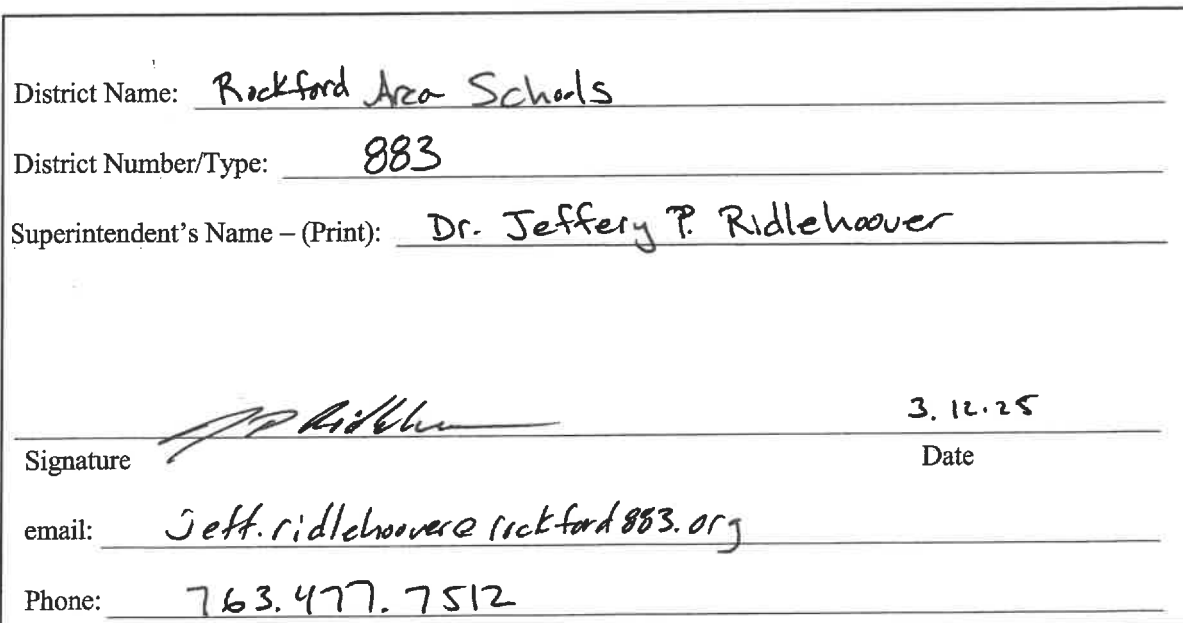 District Name: Rockford Area Schools
District Number/Type: 883
Superintendent's Name – (Print): Dr. Jeffery P. Ridlehoover
3.12.25
Signature Date
email: jeff.ridlehoover@rockford883.org
Phone: 763.477.7512